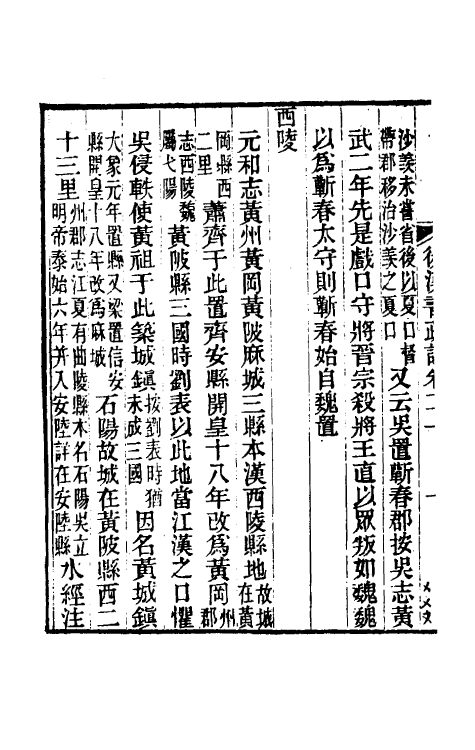 後漢書疏證卷二十一
沙羡未嘗省後以夏口督
帶郡移治沙羡之夏口
又云吳置蘄春郡按吳志黃
武二年先是戲口守將晉宗殺將王直以眾叛如魏魏
以為蘄春太守則蘄春始自魏置
西陵
元和志黃州黃岡黃陂麻城三縣本漢西陵縣地故城
在黃
岡縣西
二里
蕭齊于此置齊安縣開皇十八年改為黃岡州
郡
志西陵魏
屬弋陽
黃陂縣三國時劉表以此地當江漢之口懼
吳侵軼使黃祖于此築城鎮按劉表時猶
未成三國
因名黃城鎮
大象元年置縣又梁置信安
縣開皇十八年改為麻城
石陽故城在黃陂縣西二
十三里州郡志江夏有曲陵縣本名石陽吳立
明帝泰始六年并入安陸詳在安陸縣
水經注